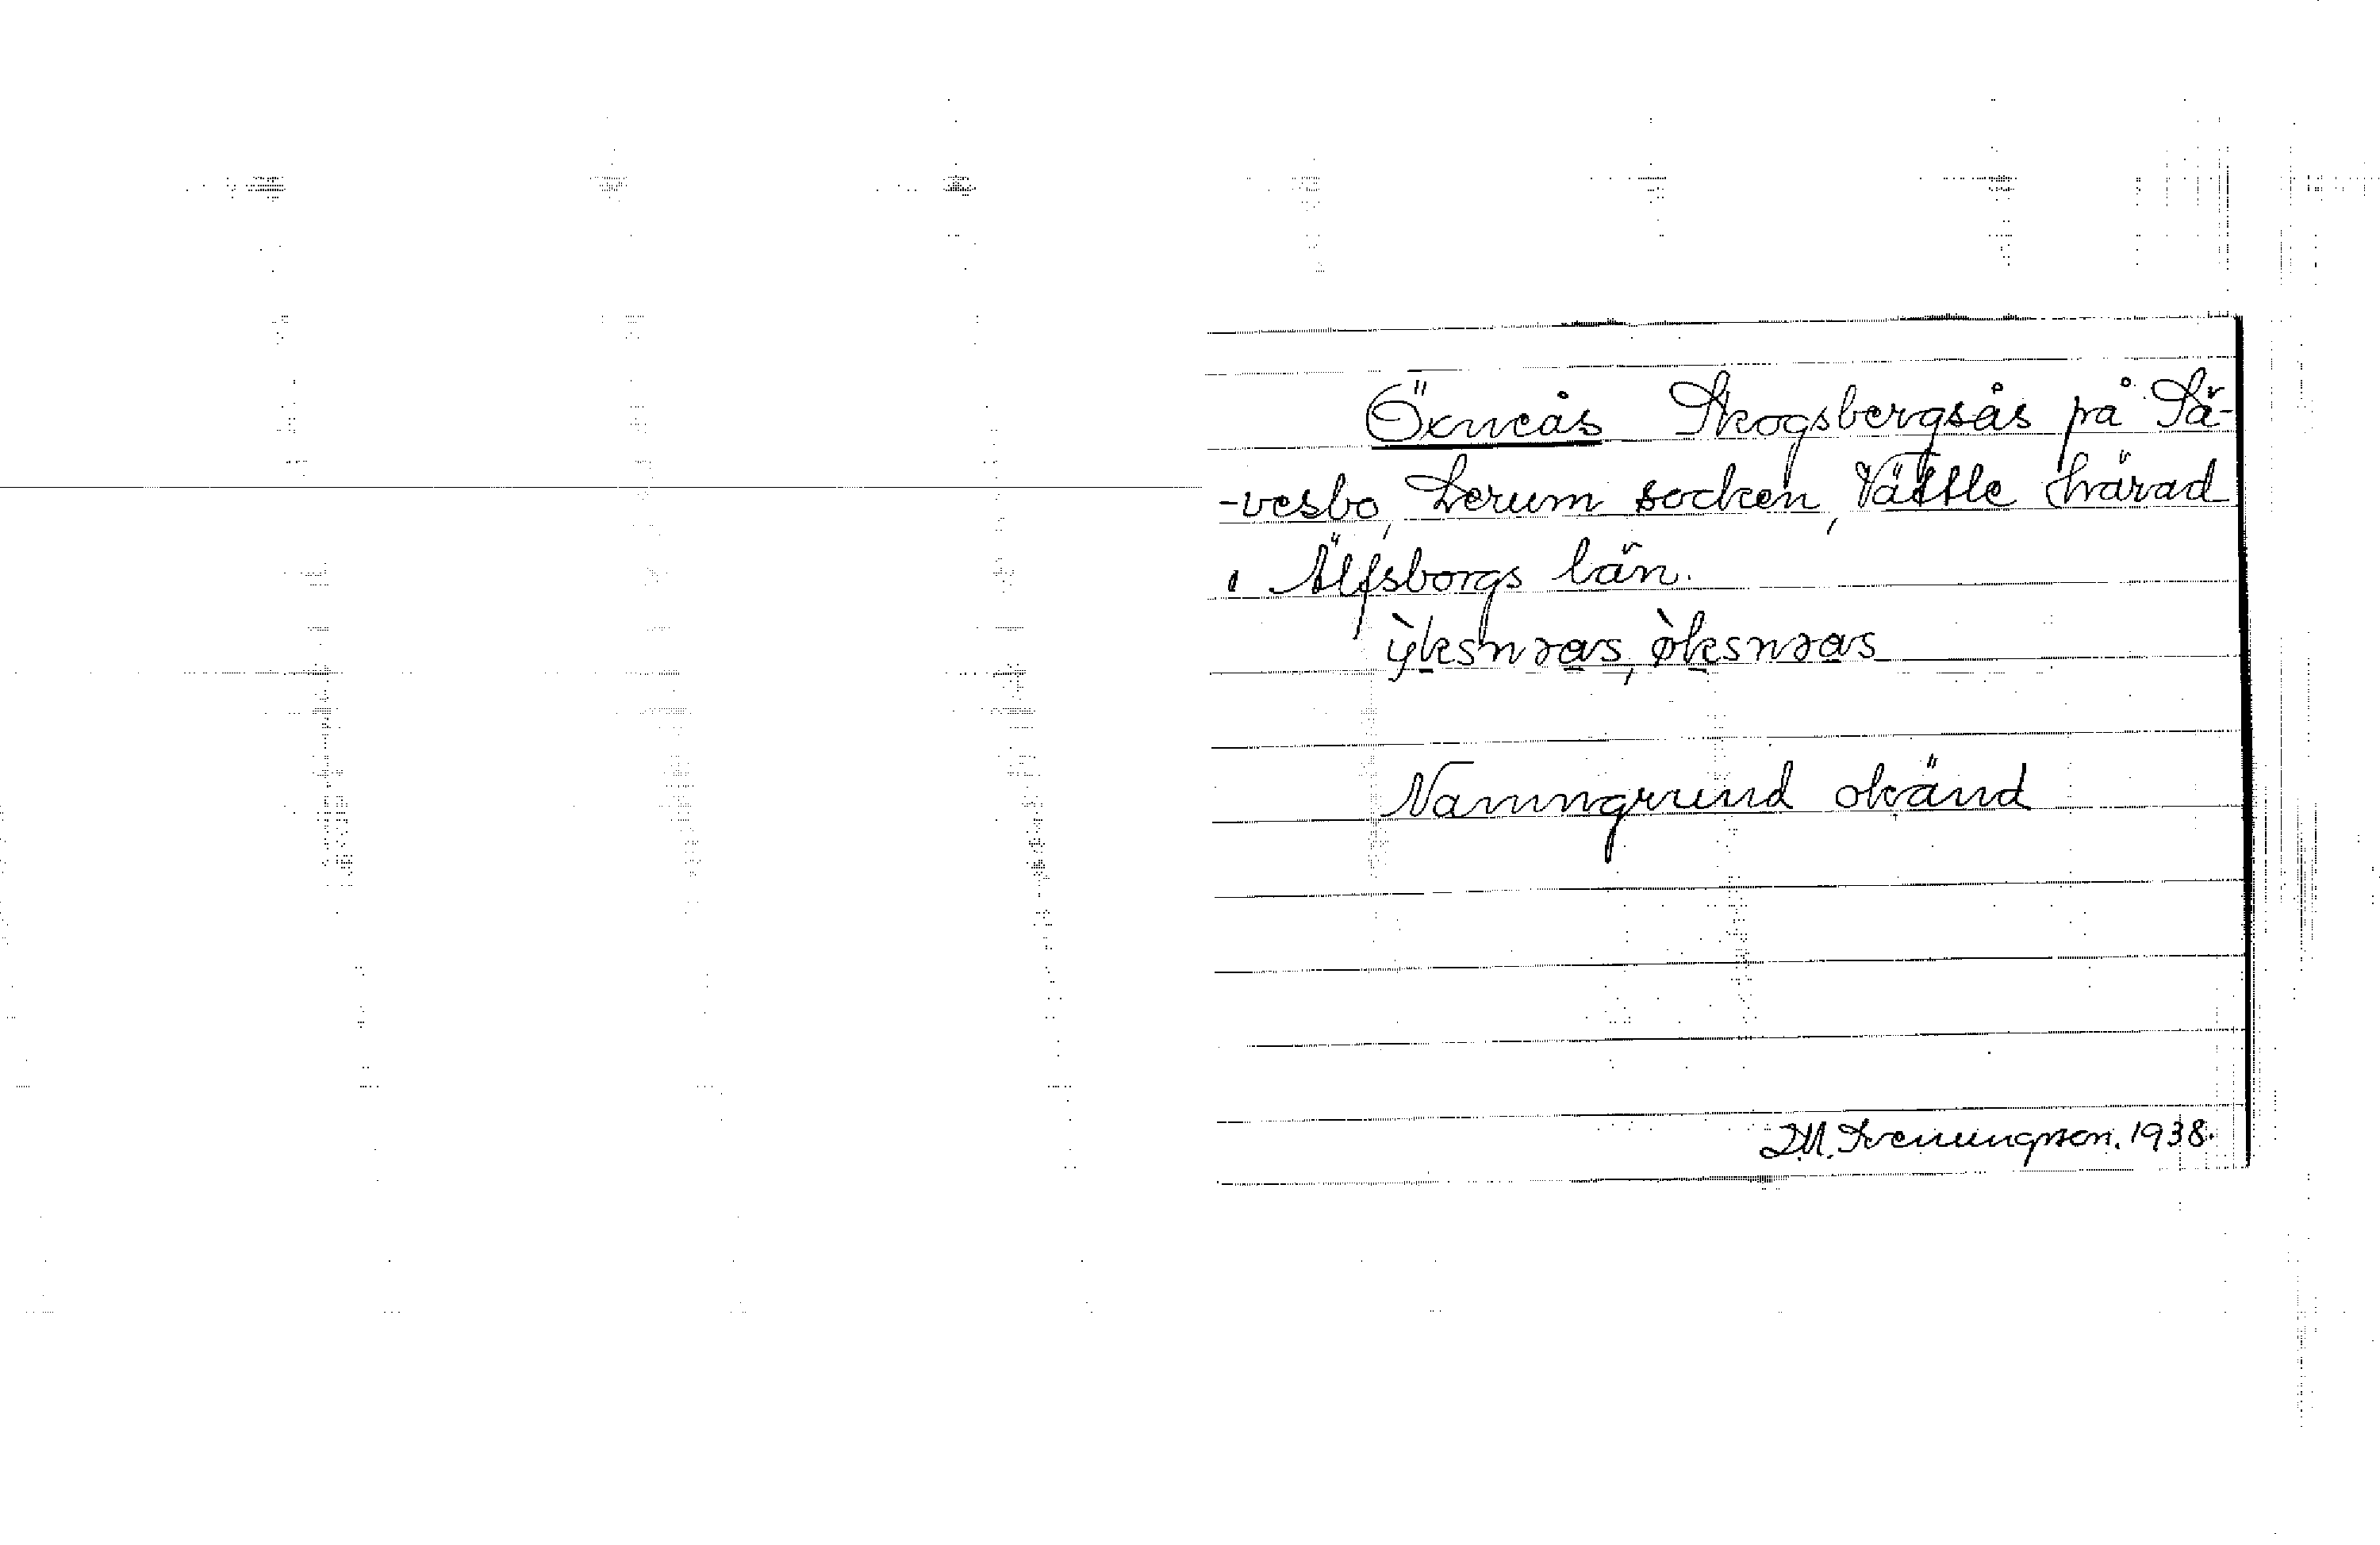 Öxneås Skogsbergsås på Sä-
-vesbo, Lerum socken, Vättle härad
i Älfsborgs län.
ỳksnɘas, ø̀ksnɘas
Namngrund okänd
D.M. Svenungsson. 1938.